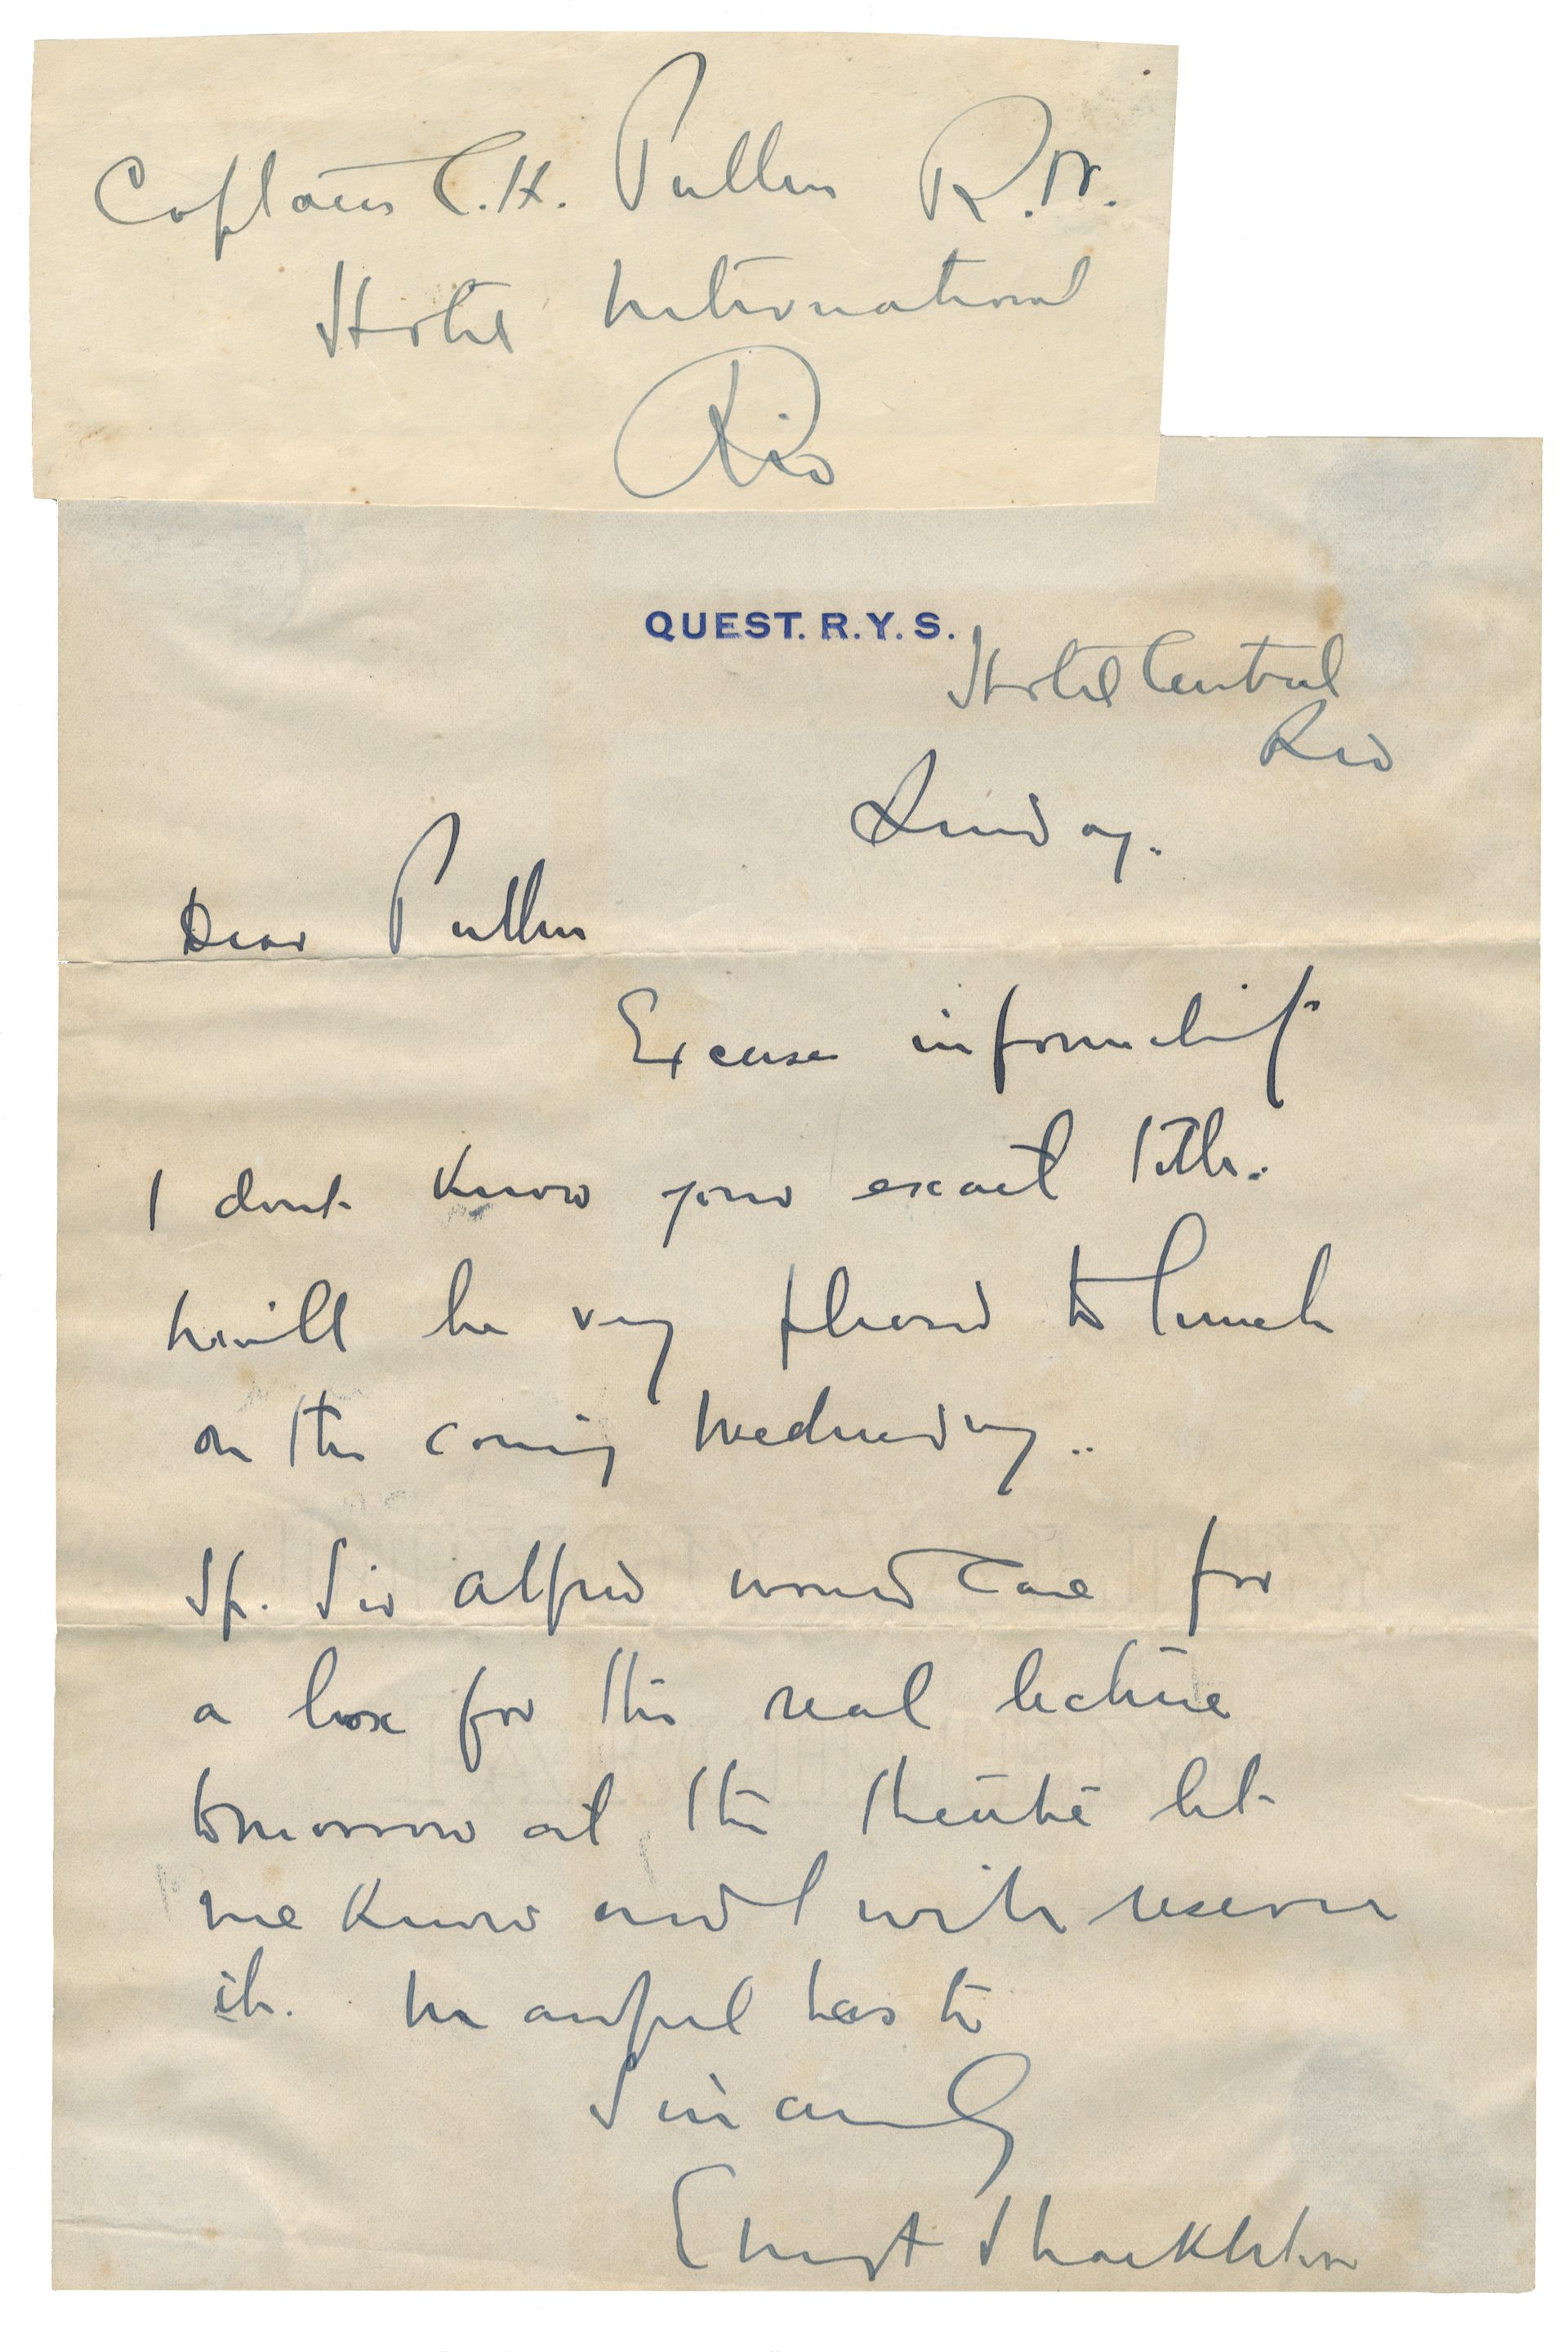 Captain C.H. Pullen R.N.
Hotel International
Rio
QUEST. R.Y.S.
Hotel Central
Rio
Sunday.
Dear Pullen
Excuse informality
I dont know your exact title.
will be very pleased to lunch
on the coming Wednesday..
If. Sir Alfred would care for
a box for the real lecture
tomorrow at the theatre let
me know and I will reserve
it. In awful haste
Sincerely
Ernest Shackleton